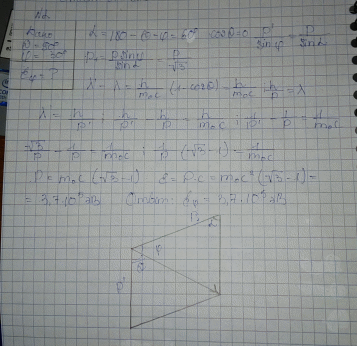 N2
Дано
θ = 90°
φ = 30°
ε_γ = ?
α = 180 - 90 - φ = 60° cosθ = 0 p'/sinφ = p/sinα
p' = p sinφ/sinα = p/√3
λ' - λ = h/m₀c (1 - cosθ) = h/m₀c h/p = λ
λ = h/p ; h/p' - h/p = h/m₀c ; 1/p' - 1/p = 1/m₀c
√3/p - 1/p = 1/m₀c ; 1/p (√3 - 1) = 1/m₀c
P = m₀c (√3 - 1) ε = P·c = m₀c² (√3 - 1) =
= 3,7·10⁵ эВ Ответ: ε_γ = 3,7·10⁵ эВ
α
φ
θ
P'